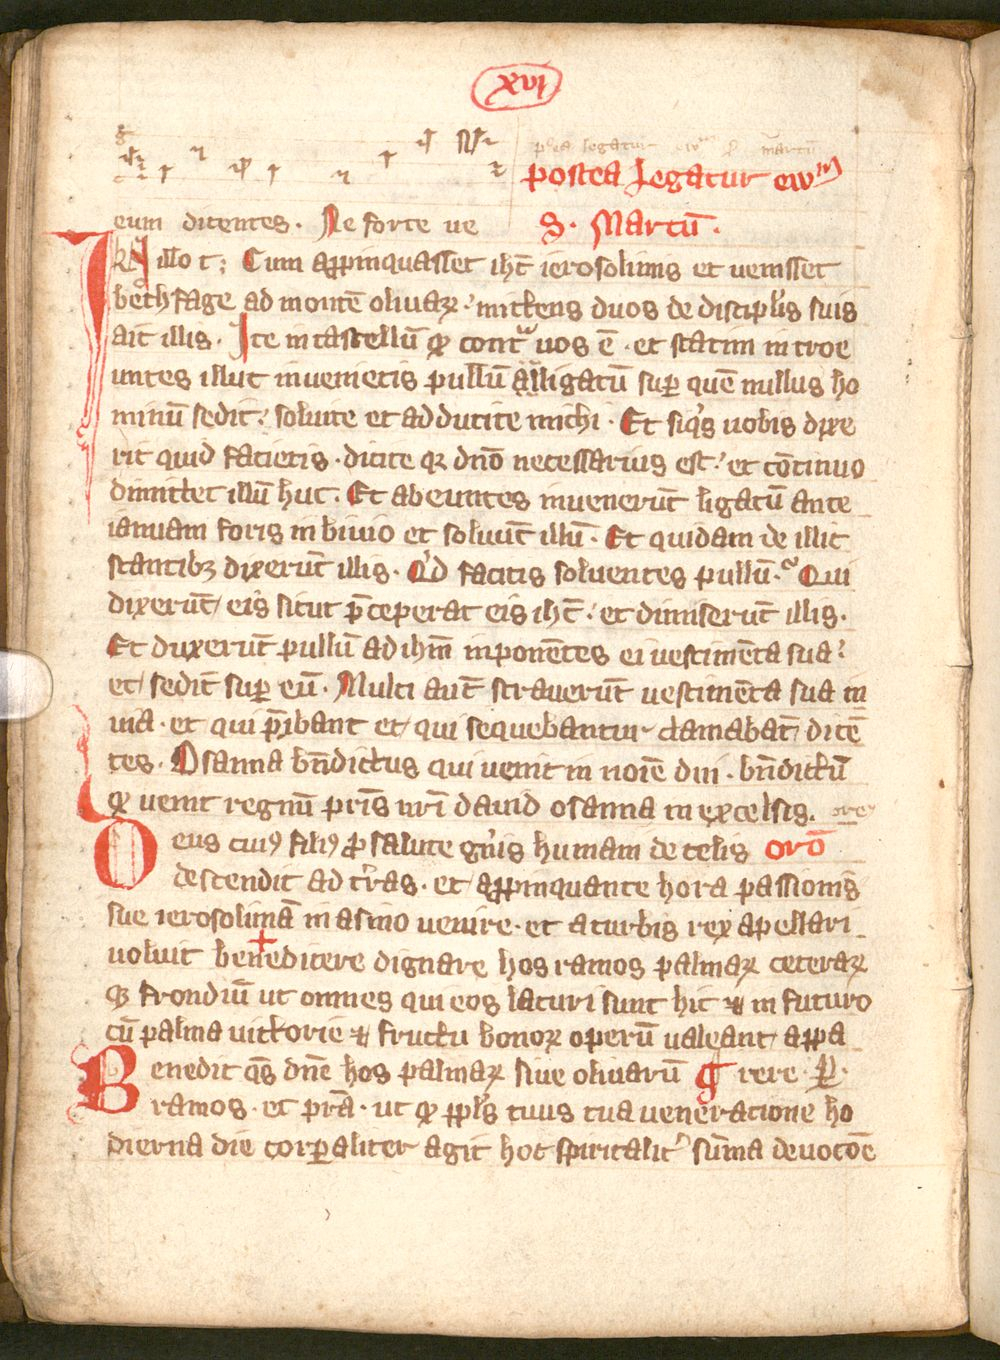 xvi
postea legatur ew̄
postea legatur ewm
eum dicentes. Ne forte ue
S. Marcū.
IN illo t; Cum appinquasset ihc̄ ierosolimis et uenisset
bethfage ad montē oliuaꝝ mittens duos de discipl̓is suis
ait illis. Ite in castellū qͦ contᵃ uos ē. et statim introe
untes illuc inuenietis pullū alligatū suꝑ quē nullus ho
minū sedit. soluite et adducite michi. Et siqͥs uobis dixe
rit quid facietis. dicite qꝛ dn̄o necessarius est. et cōtinuo
dimittet illū huc. Et abeuntes inuenerūt ligatū ante
ianuam foris in biuio et soluūt illū. Et quidam de illic
stantibꝫ dixerūt illis. Qͥd facitis soluentes pullū. Qui
dixerūt eis sicut p̄ceperat eis ihc̄. et dimiserūt illis.
Et duxerūt pullū ad ihm̄ inponētes ei vestimēta sua.
et sedit suꝑ eū. Multi aut̄ strauerūt uestimēta sua in
uia. et qui p̄ibant et qui sequebantur clamabāt dicē
tes. Osanna bn̄dictus qui uenit in noīe dni. bn̄dictū
qͦ uenit regnū pr̄is nr̄i dauid osanna in excelsis.
Deus cuiꝯ filiꝯ ꝓ salute gn̄is humani de celis orō
descendit ad tr̄as. et appinquante hora passionis
sue ierosolimā in asino uenire. et a turbis rex apellari
uoluit bene✝dicere dignare hos ramos palmaꝝ ceteraꝝ
qꝫ frondiū ut omnes qui eos laturi sunt hic ⁊ in futuro
cū palma uictorie ⁊ fructu bonoꝝ operū ualeant appa
Benedic qs̄ dn̄e hos palmaꝝ siue oliuarū ¶ rere. ꝑ.
ramos. et pr̄a. ut qͦ ppl̓s tuus tua ueneratione ho
dierna die corꝑaliter agit hoc spiritalit̓ sūma deuocōe